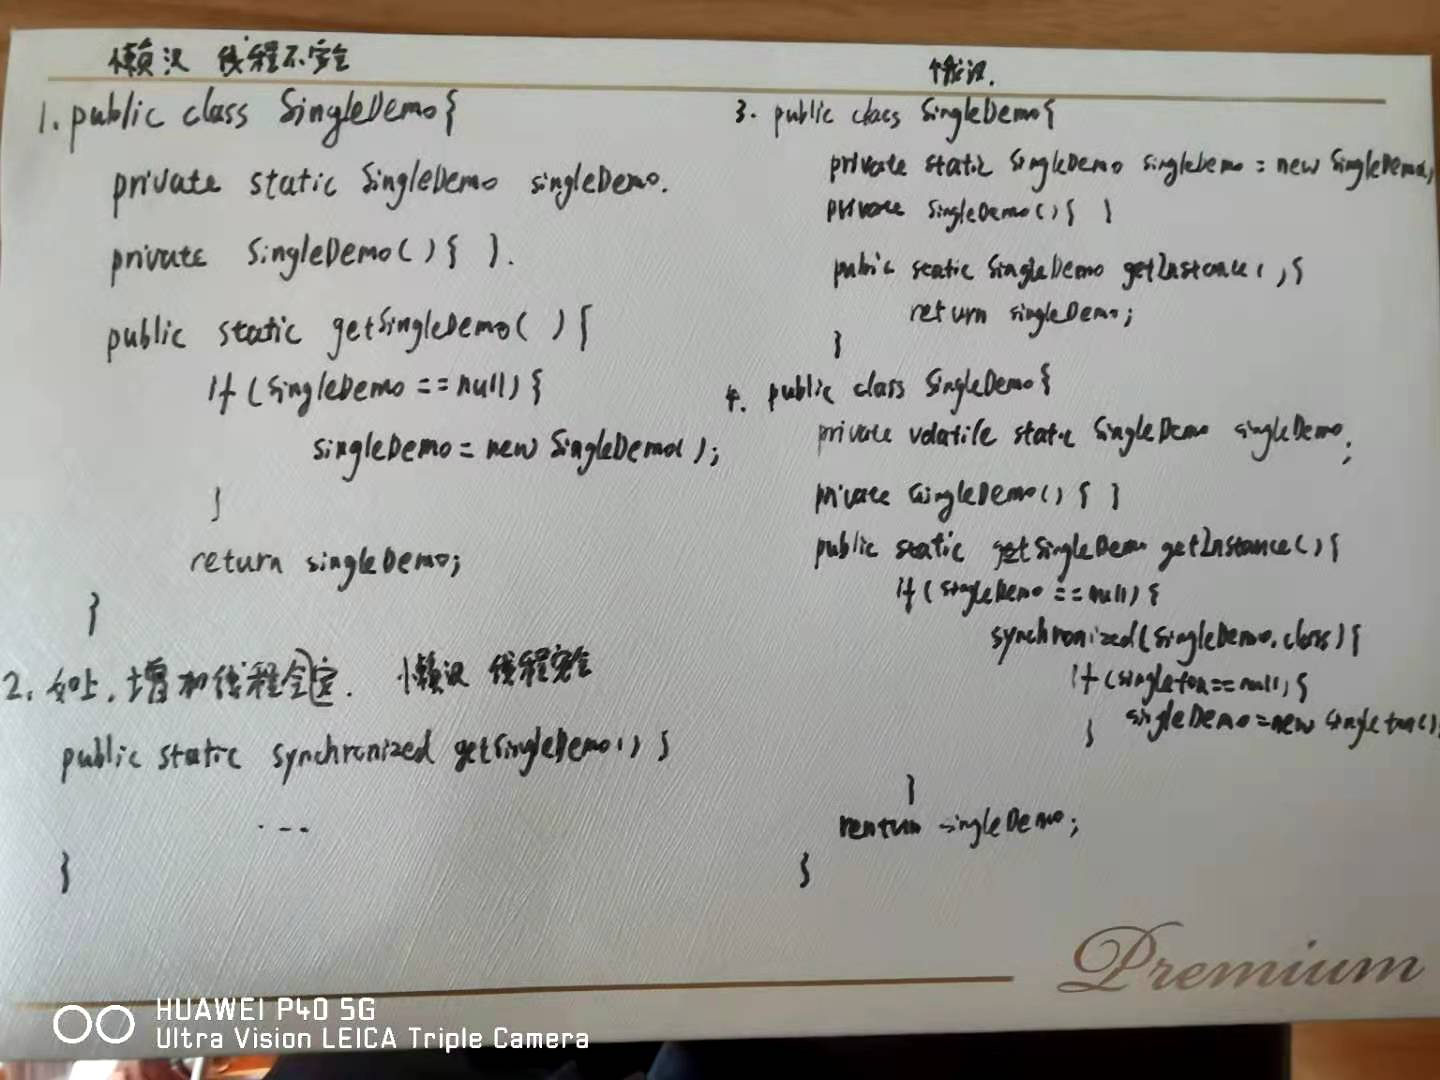 懒汉 线程不安全
1. public class SingleDemo{
private static SingleDemo singleDemo.
private SingleDemo(){ }.
public static getSingleDemo( ){
if (singleDemo == null) {
singleDemo = new SingleDemo();
}
return singleDemo;
}
2. 如上, 增加线程锁定. 懒汉 线程安全
public static synchronized getSingleDemo() }
...
}
3. public class SingleDemo{
private static SingleDemo singleDemo = new SingleDemo();
private SingleDemo(){ }
public static SingleDemo getInstance(){
return singleDemo;
}
4. public class SingleDemo{
private volatile static SingleDemo singleDemo;
private SingleDemo() { }
public static getSingleDemo getInstance(){
if (singleDemo == null) {
synchronized(SingleDemo.class){
if (singleton == null){
singleDemo = new Singleton();
}
}
renturn singleDemo;
}
Premium
HUAWEI P40 5G
Ultra Vision LEICA Triple Camera